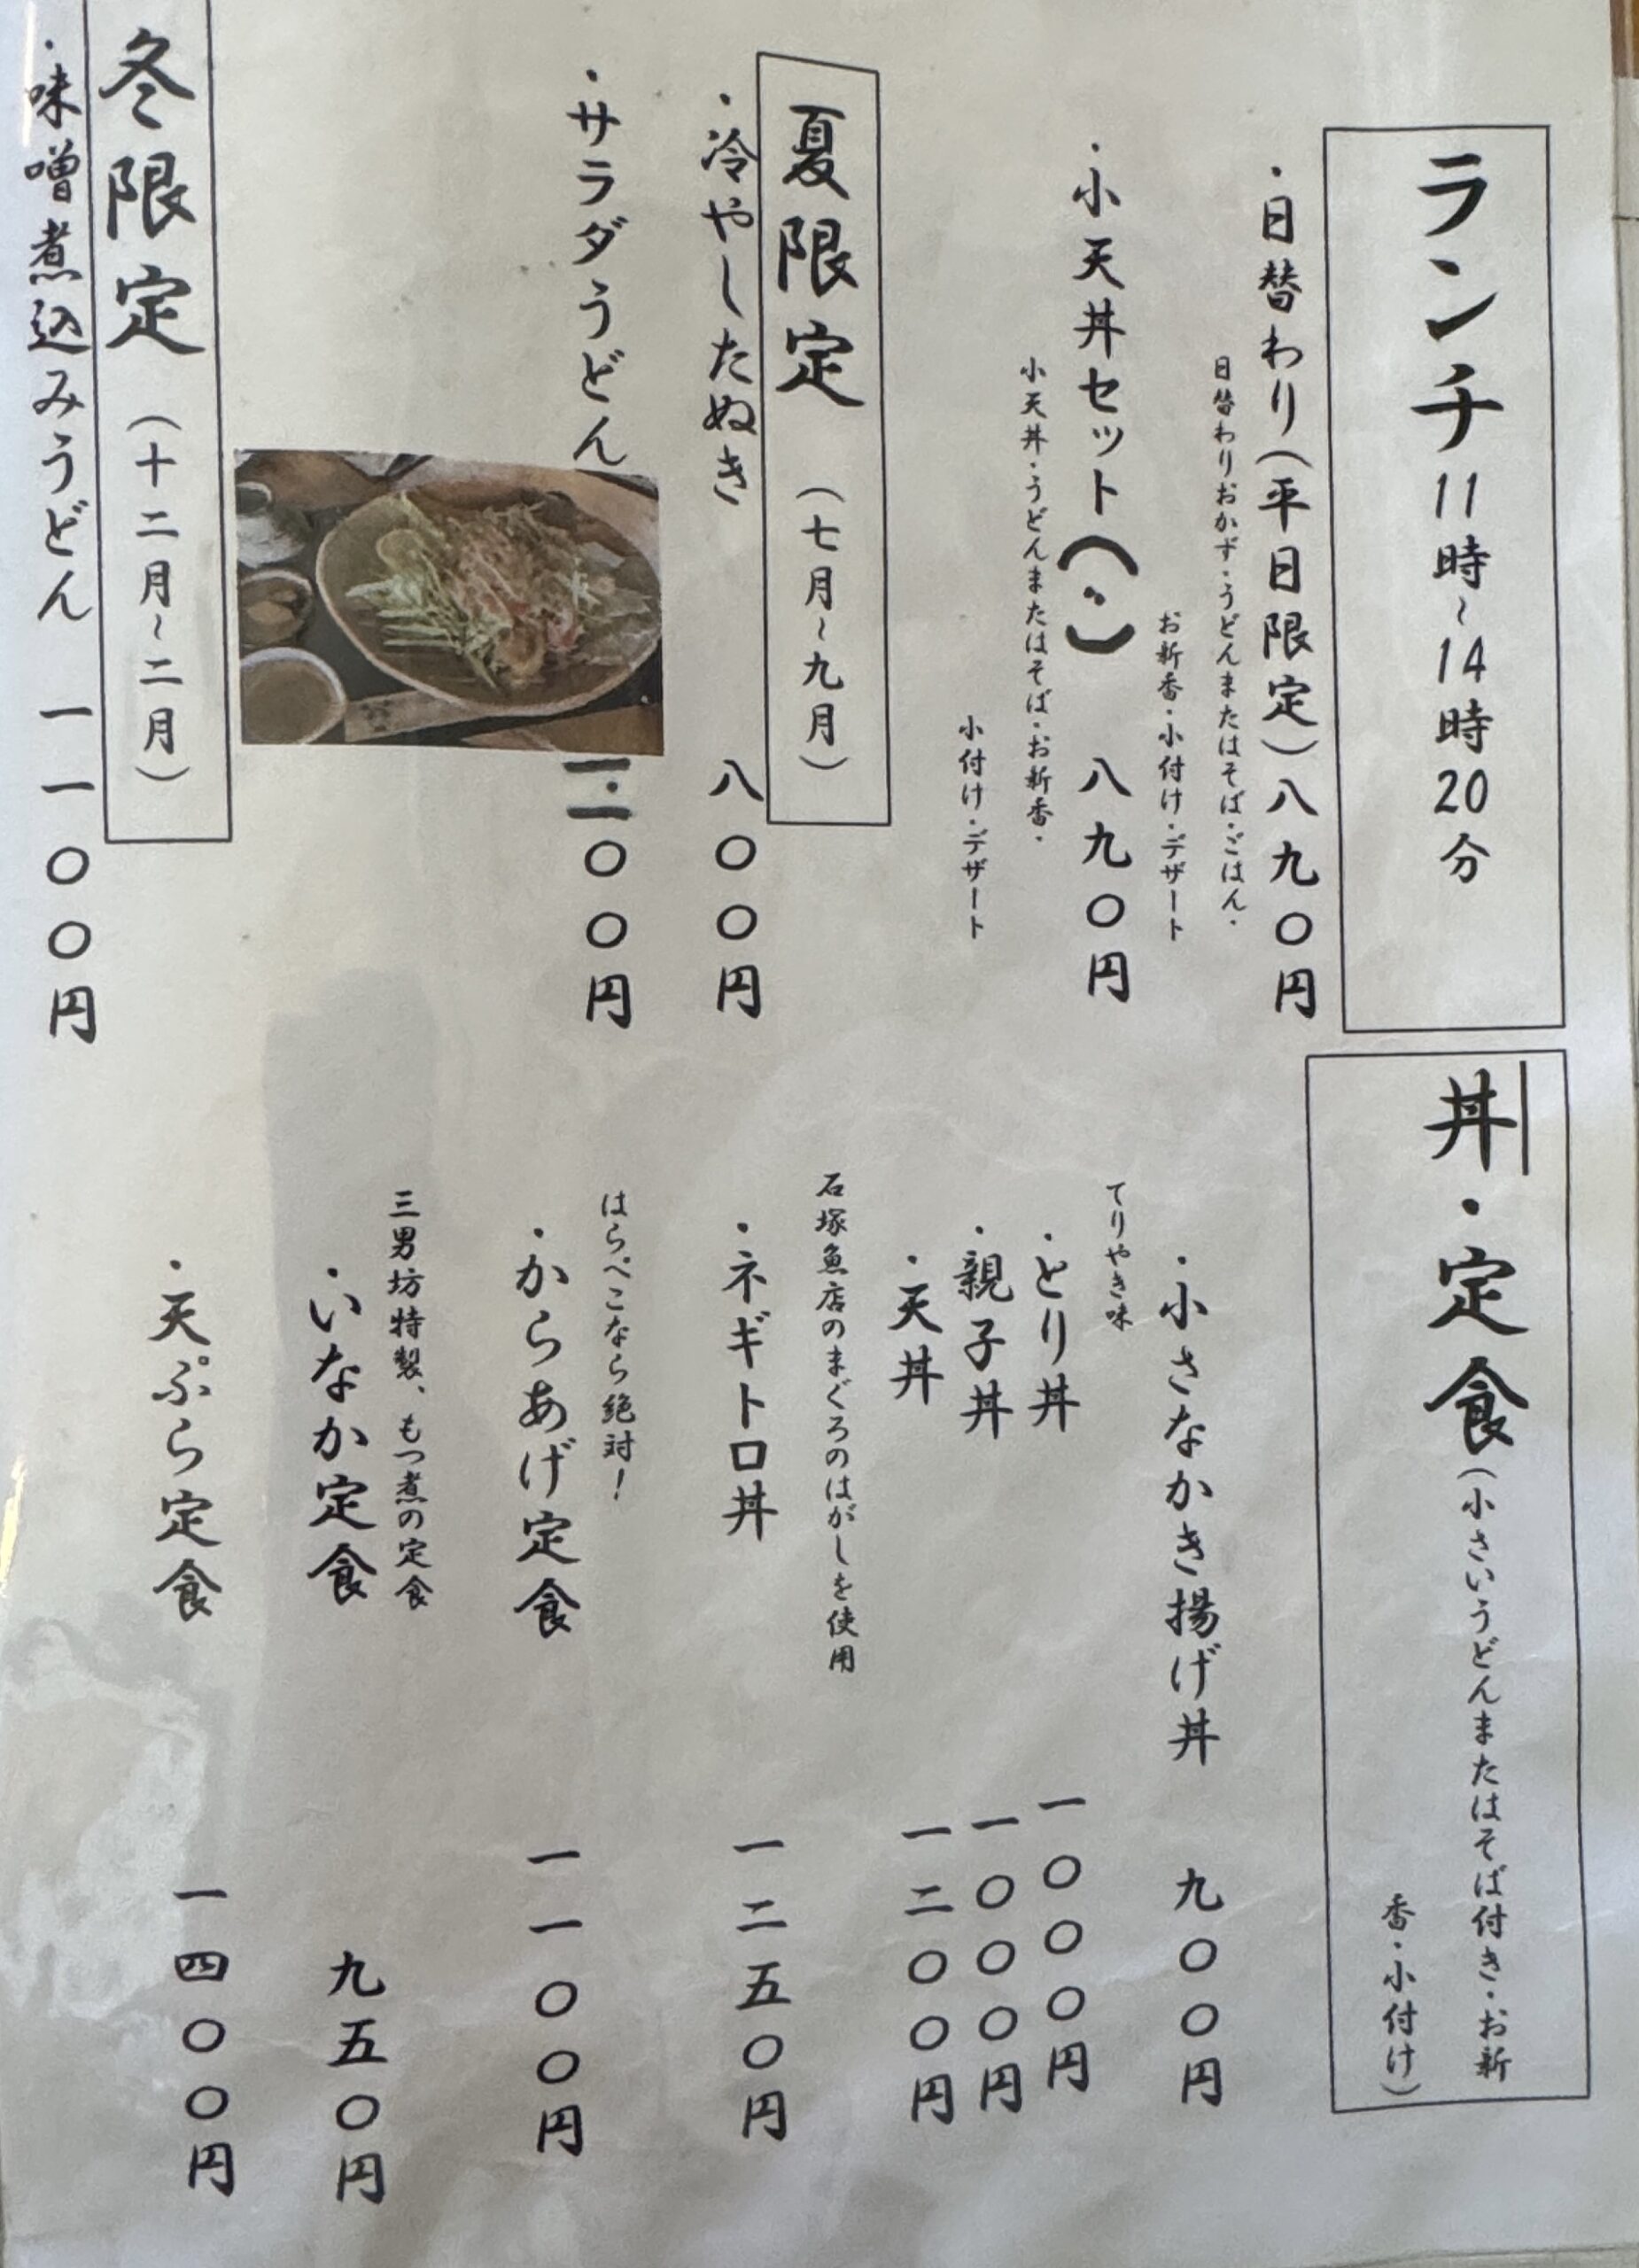 ランチ11時～14時20分
・日替わり（平日限定）八九〇円
日替わりおかず・うどんまたはそば・ごはん・
お新香・小付け・デザート
・小天丼セット 八九〇円
小天丼・うどんまたはそば・お新香・
小付け・デザート
夏限定（七月～九月）
・冷やしたぬき 八〇〇円
・サラダうどん 〇〇円
冬限定（十二月～二月）
・味噌煮込みうどん 一一〇〇円
丼・定食（小さいうどんまたはそば付き・お新
香・小付け）
・小さなかき揚げ丼 九〇〇円
てりやき味
・とり丼 一〇〇〇円
・親子丼 一〇〇〇円
・天丼 一二〇〇円
石塚魚店のまぐろのはがしを使用
・ネギトロ丼 一二五〇円
はらぺこなら絶対！
・からあげ定食 一一〇〇円
三男坊特製、もつ煮の定食
・いなか定食 九五〇円
・天ぷら定食 一四〇〇円